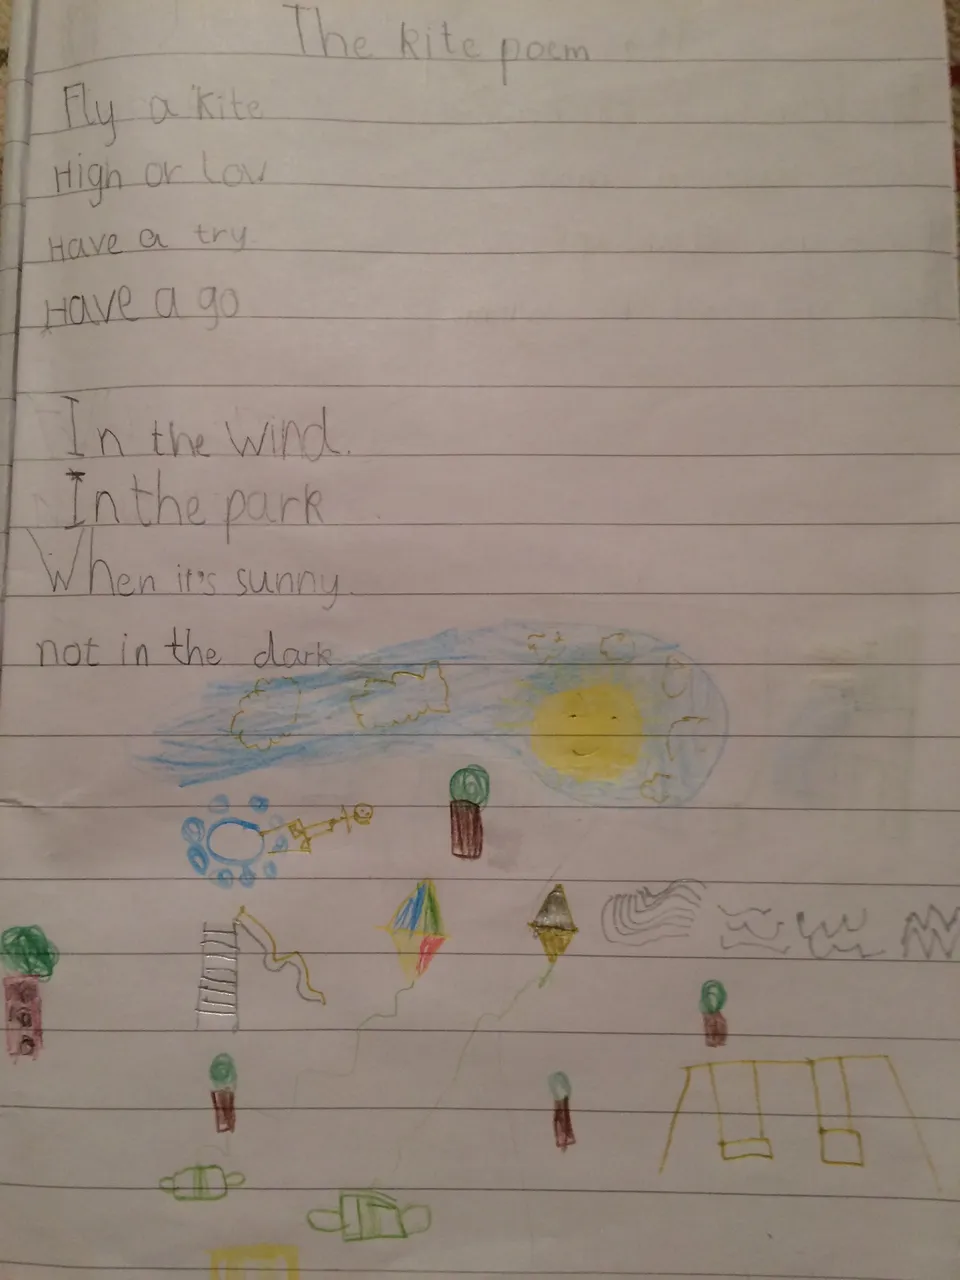 The kite poem
Fly a kite
High or low
Have a try
Have a go
In the wind.
In the park
When it's sunny.
not in the dark